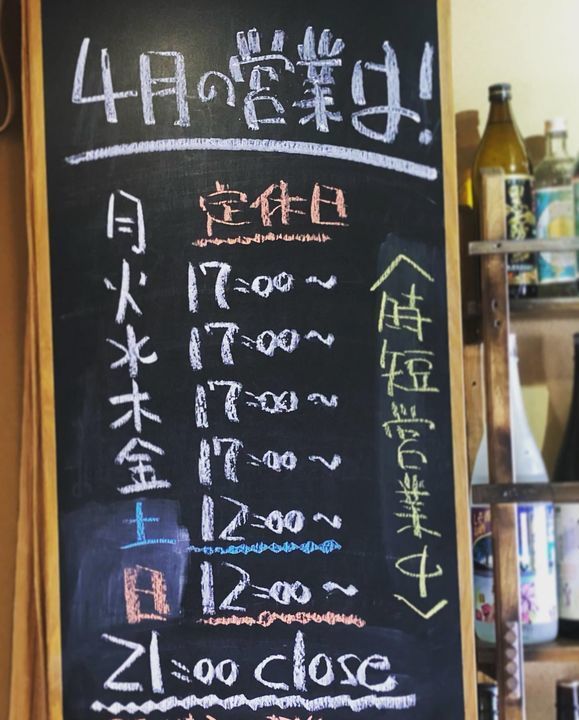 4月の営業は!
月 定休日
火 17:00～
水 17:00～
木 17:00～
金 17:00～
土 12:00～
日 12:00～
<時短営業中>
21:00 close